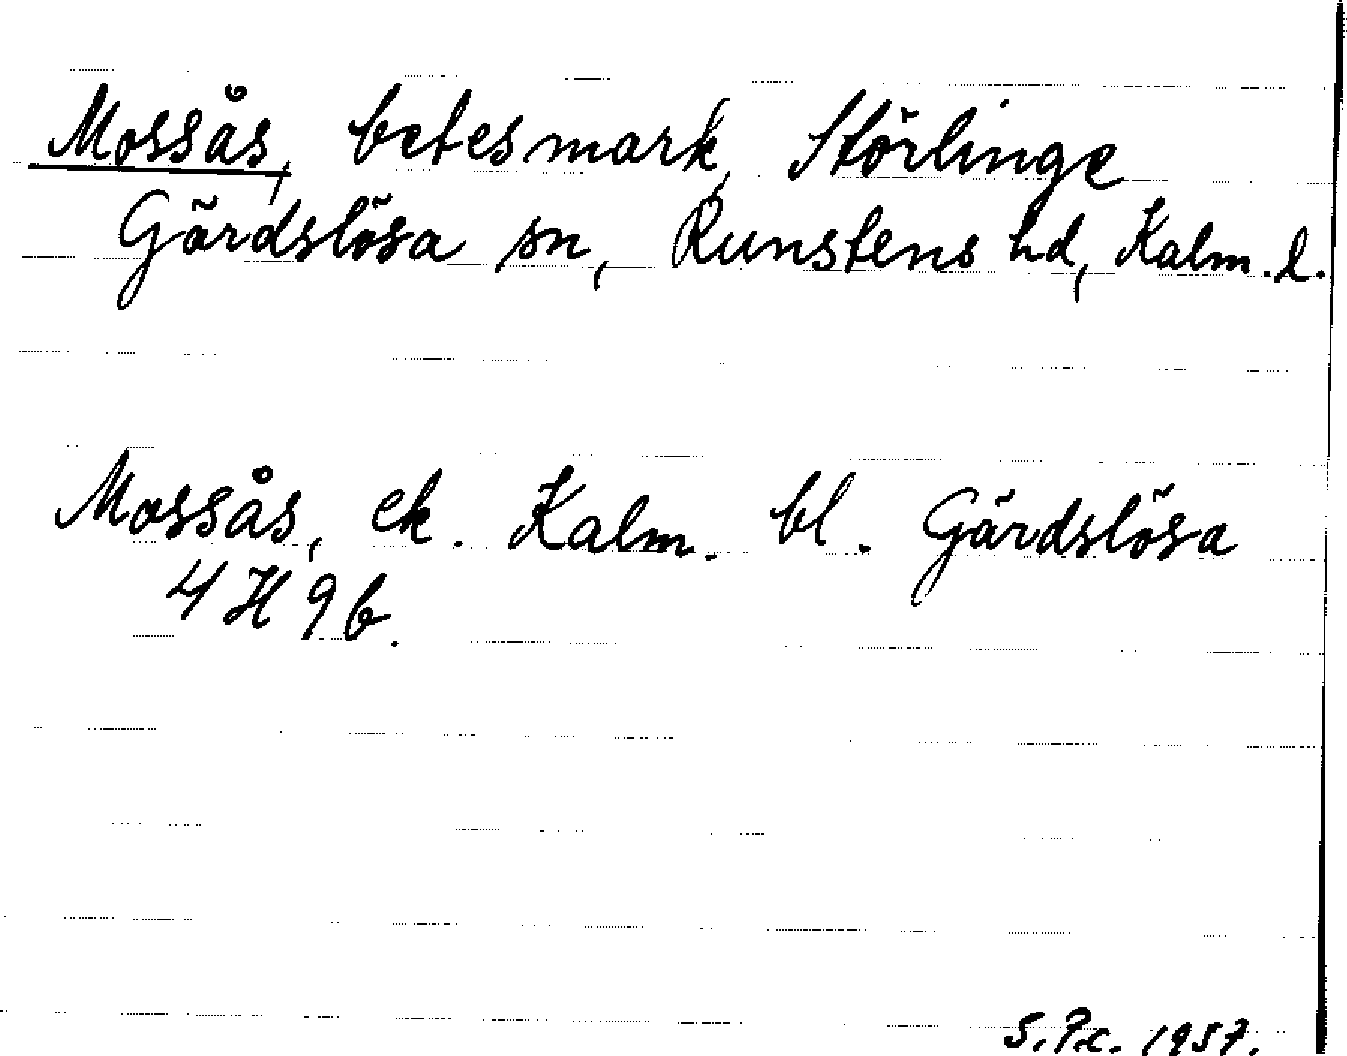 Mossås, betesmark, Störlinge
Gärdslösa sn, Runstens hd, Kalm. l.
Mossås, ek. Kalm. bl. Gärdslösa
4 H 9 b.
S.P:c. 1957.